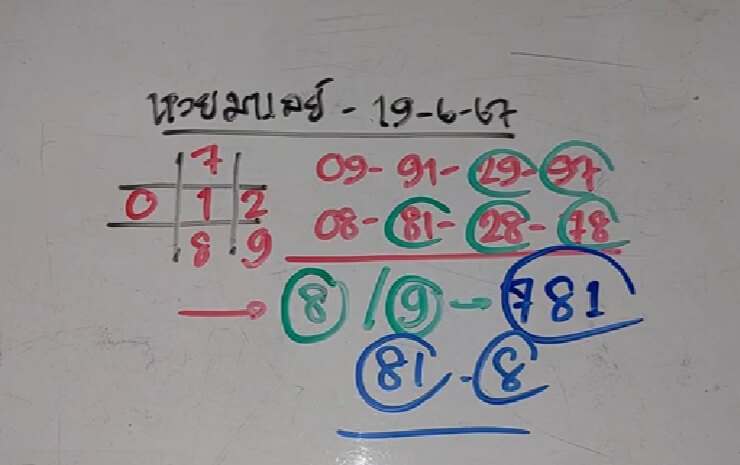 หวยมาเลย์ - 19-6-67
7
0 1 2
8 9
09- 91- 29- 97
08- 81- 28- 78
8 / 9 - 781
81 - 8